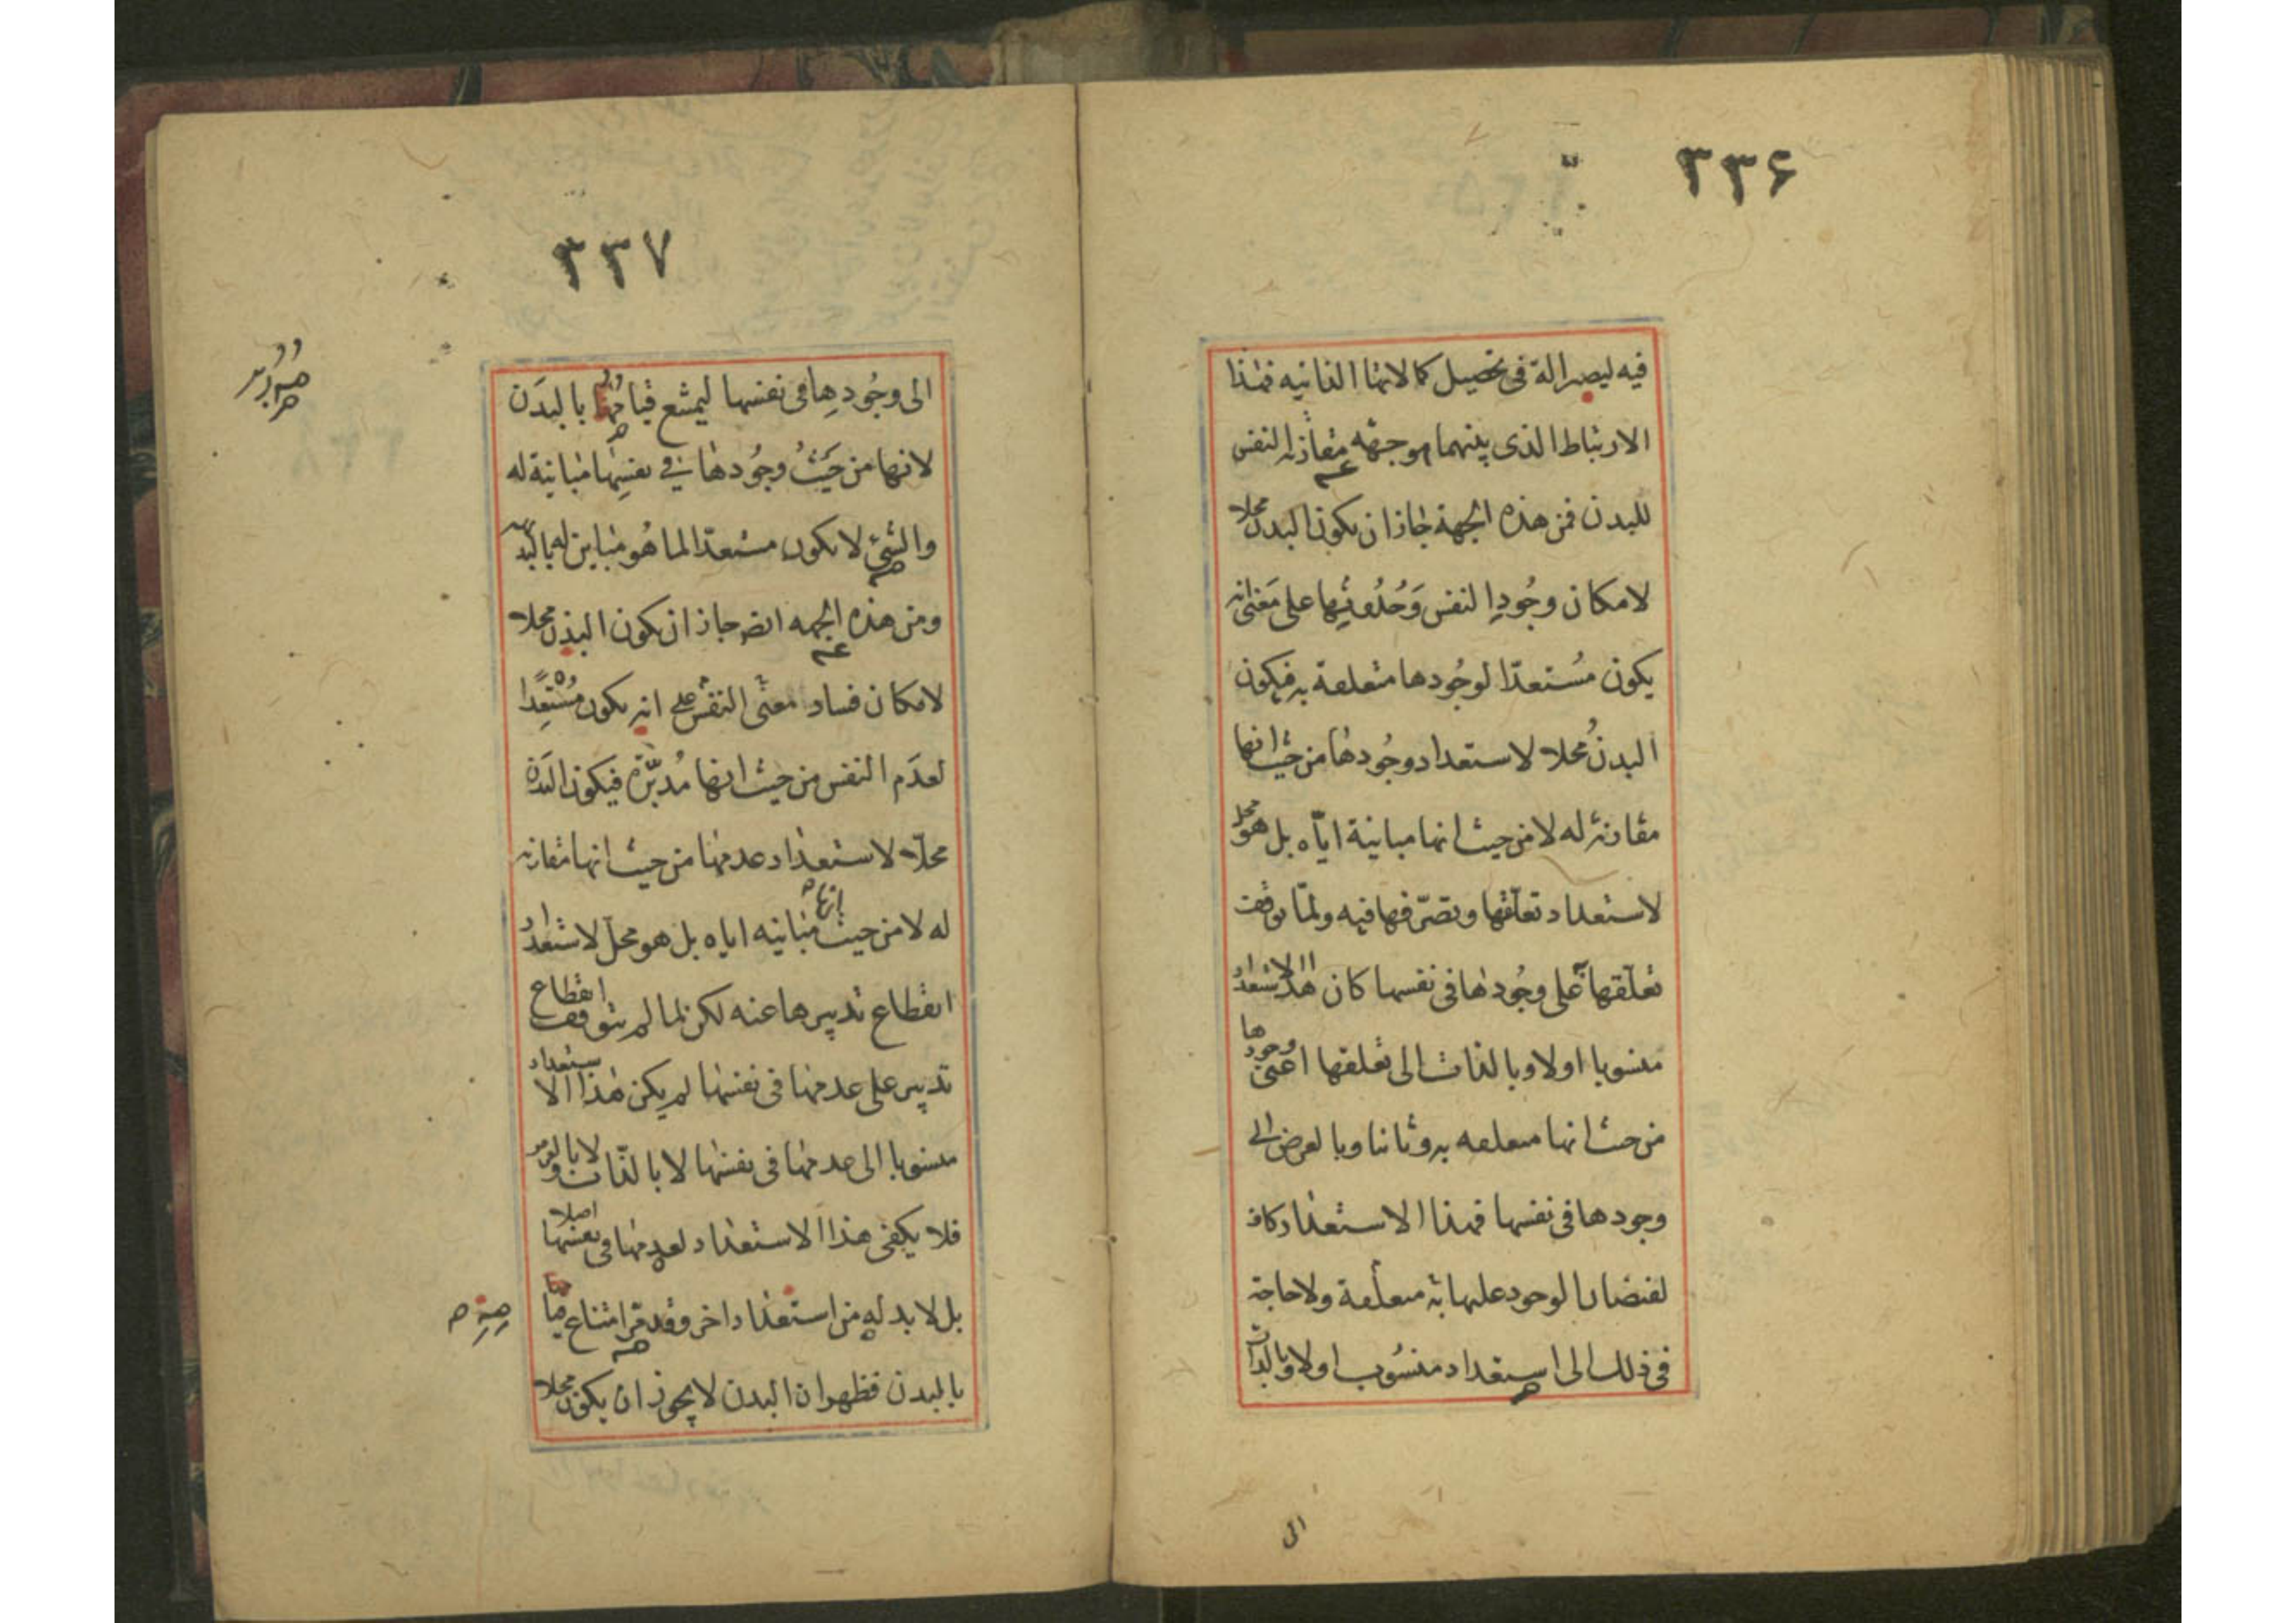 ٣٣۶
فيه ليصير الة فى تحصيل كمالاتها الذاتيه فهذا
الارتباط الذى بينهما هو جهة مقارنة النفس
للبدن فمن هذه الجهة جاز ان يكون البدن محلا
لامكان وجُودِ النفس وَحُدُوثِها على مَعنى انه
يكون مُستعدّا لوجُودها متعلقة به فيكون
البدنُ محلا لاستعداد وجُودها من حيث انها
مقارنة له لا من حيث انها مباينة ايّاه بل هو محل
لاستعداد تعلّقها وتصرّفها فيه ولمّا توقفت
تعلّقها على وجُودها فى نفسها كان هذا الاستعداد
منسوبا اولا وبالذات الى تعلقها اعنى وجودها
من حيث انها متعلقه به وثانيا وبالعرض الى
وجودها فى نفسها فهذا الاستعداد كاف
لفيضان الوجود عليها به متعلقة ولا حاجة
فى ذلك الى استعداد منسُوب اولا وبالذات
الى
٣٣٧
الى وجُودِها فى نفسها ليمتنع قيامُها بالبدَن
لانها من حَيثُ وجُودها فى نفسِها مباينة له
والشئ لا يكون مستعدّا لما هُو مباين له بالبد
ومن هذه الجهه ايضا جاز ان يكون البدن محلا
لامكان فساد معنى النفس على انه يكون مُستعِدًا
لعدَم النفس من حيث انها مُدبّرة فيكون البدن
محلّا لاستعداد عدمها من حيث انها مقارنه
له لا من حيث انها مباينه اياه بل هو محلّ لاستعداد
انقطاع تدبيرها عنه لكن لما لم يتوقف انقطاع
تدبير على عدمها فى نفسها لم يكن هذا الاستعداد
منسوبا الى عدمها فى نفسها لا بالذات ولا بالعرض
فلا يكفى هذا الاستعداد لعدمها فى نفسها اصلا
بل لا بد له من استعداد اخر وقد مرّ امتناع
بالبدن فظهر ان البدن لا يجوز ان يكون محلا